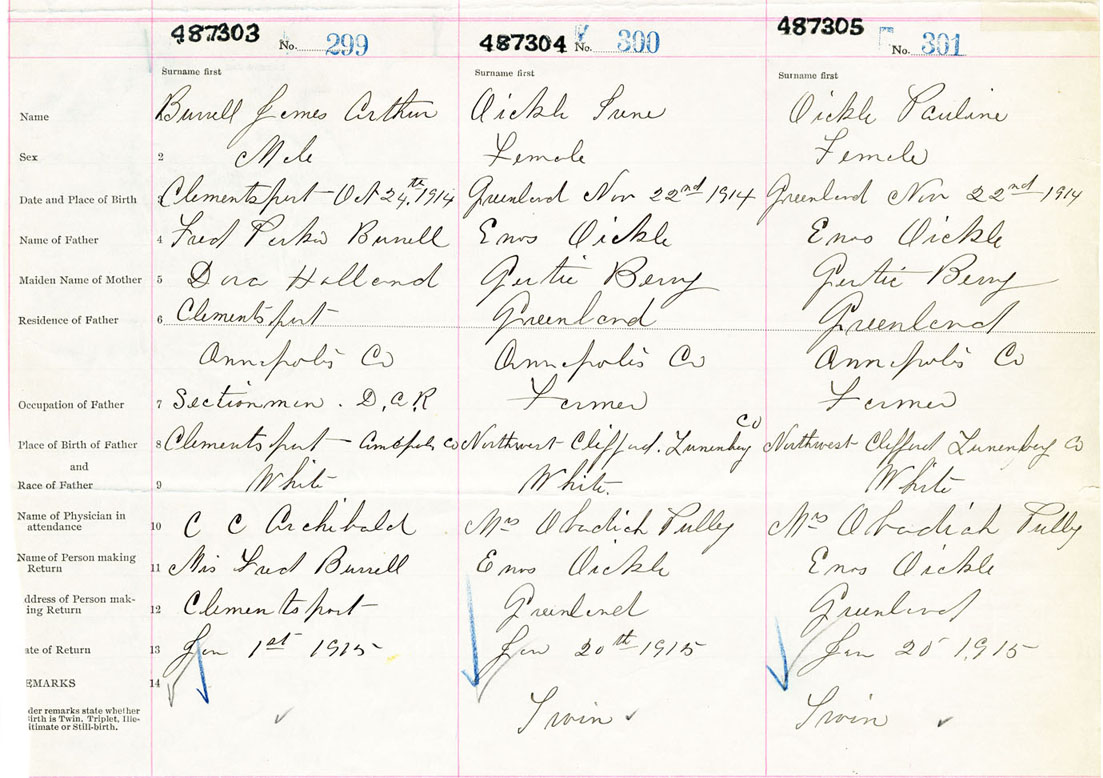 487303 No. 299 487304 No. 300 487305 No. 301
Surname first Surname first Surname first
Name Burrell James Arthur Oickle Irene Oickle Pauline
Sex 2 Male Female Female
Date and Place of Birth 3 Clementsport - Oct 24th, 1914 Greenland Nov 22nd 1914 Greenland Nov 22nd 1914
Name of Father 4 Fred Parker Burrell Enos Oickle Enos Oickle
Maiden Name of Mother 5 Dora Holland Gertie Berry Gertie Berry
Residence of Father 6 Clementsport Greenland Greenland
Annapolis Co Annapolis Co Annapolis Co
Occupation of Father 7 Sectionman. D.A.R Farmer Farmer
Place of Birth of Father 8 Clementsport - Annapolis Co Northwest Clifford. Lunenburg Co Northwest Clifford Lunenburg Co
and
Race of Father 9 White White. White
Name of Physician in
attendance 10 C C Archibald Mrs Obadiah Tully Mrs Obadiah Tully
Name of Person making
Return 11 Mrs Fred Burrell Enos Oickle Enos Oickle
ddress of Person mak-
ing Return 12 Clementsport Greenland Greenland
ate of Return 13 Jan 1st 1915 Jan 20th 1915 Jan 20 1915
EMARKS 14
der remarks state whether
Birth is Twin, Triplet, Ille-
itimate or Still-birth. Twin Twin